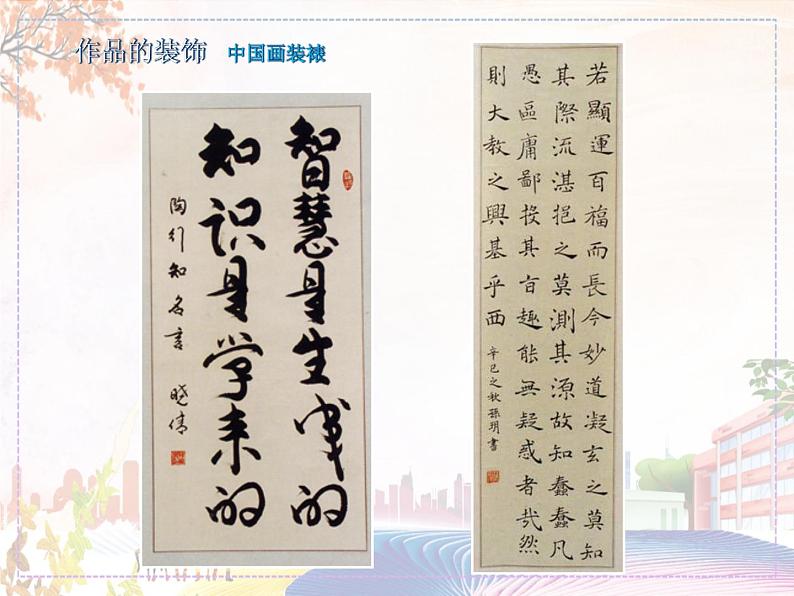 作品的装饰 中国画装裱
智慧是生成的
知识是学来的
陶行知名言 晓倩
若顯運百福而長今妙道凝玄之莫知
其際流湛挹之莫測其源故知蠢蠢凡
愚區庸鄙投其旨趣能無疑惑者哉然
則大教之興基乎西
辛巳之秋孫玥書